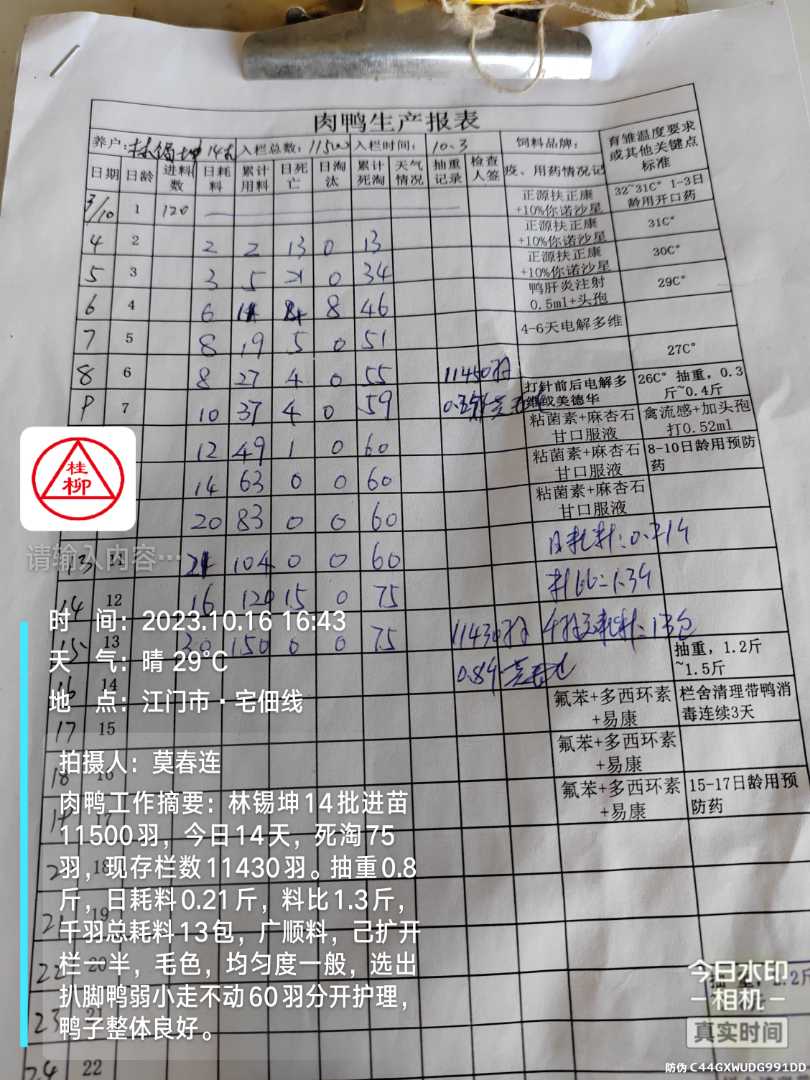 肉鸭生产报表
养户: 林锡坤 14批 入栏总数: 11500 入栏时间: 10.3 饲料品牌: 育雏温度要求或其他关键点标准
日期 日龄 进料数 日耗料 累计用料 日死亡 日淘汰 累计死淘 天气情况 抽重记录 检查人签 疫、用药情况记
3/10 1 120 正源扶正康+10%你诺沙星 32~31C° 1-3日龄用开口药
4 2 2 2 13 0 13 正源扶正康+10%你诺沙星 31C°
5 3 3 5 0 34 正源扶正康+10%你诺沙星 30C°
6 4 6 8 46 鸭肝炎注射0.5ml+头孢 29C°
7 5 8 19 5 0 51 4-6天电解多维 27C°
8 6 8 27 4 0 55 11450羽 打针前后电解多维或美德华 26C° 抽重，0.3斤~0.4斤
9 7 10 37 4 0 59 粘菌素+麻杏石甘口服液 禽流感+加头孢打0.52ml
12 49 1 0 60 粘菌素+麻杏石甘口服液 8-10日龄用预防药
14 63 0 0 60 粘菌素+麻杏石甘口服液
20 83 0 0 60
13 11 21 104 0 0 60 日耗料:0.214
14 12 16 120 15 0 75 料比:1.34
15 13 30 150 0 0 75 11430羽 千羽总耗料:13包 抽重，1.2斤~1.5斤
16 14 0.84 氟苯+多西环素+易康 栏舍清理带鸭消毒连续3天
17 15 氟苯+多西环素+易康
18 16 氟苯+多西环素+易康 15-17日龄用预防药
19 17
18
21 19
22 20
23 21
24 22
桂柳
请输入内容…
时 间: 2023.10.16 16:43
天 气: 晴 29℃
地 点: 江门市·宅佃线
拍摄人: 莫春连
肉鸭工作摘要: 林锡坤14批进苗
11500羽，今日14天，死淘75
羽，现存栏数11430羽。抽重0.8
斤，日耗料0.21斤，料比1.3斤，
千羽总耗料13包，广顺料，己扩开
栏一半，毛色，均匀度一般，选出
扒脚鸭弱小走不动60羽分开护理，
鸭子整体良好。
今日水印
-相机-
真实时间
防伪 C44GXWUDG991DD